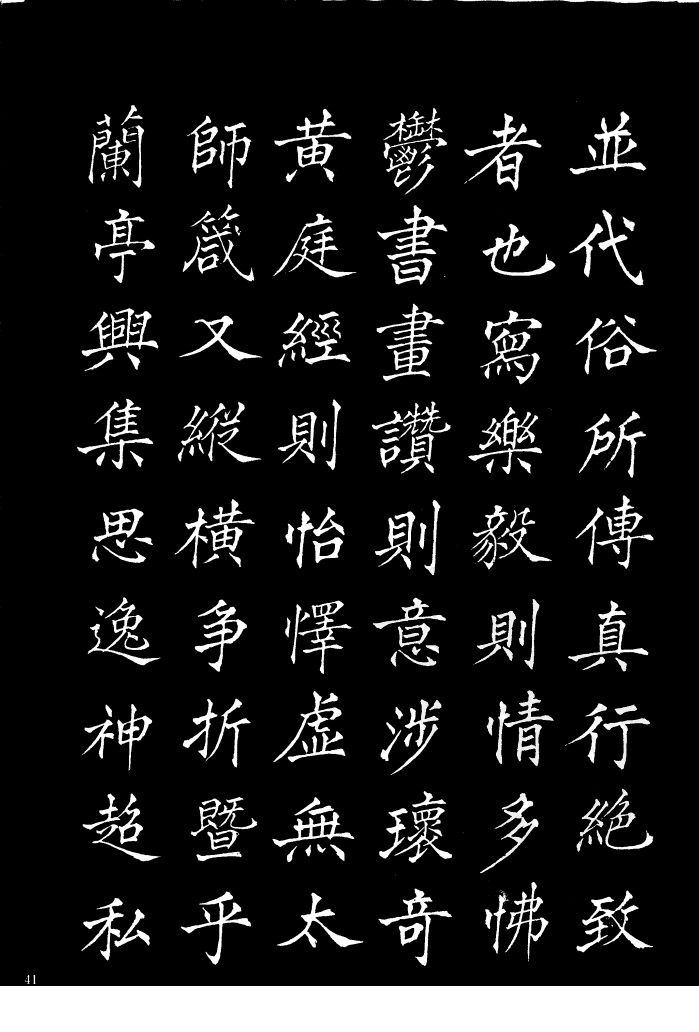 並代俗所傳真行絶致
者也寫樂毅則情多怫
鬱書畫讚則意涉瓌奇
黄庭經則怡懌虛無太
師箴又縱橫爭折暨乎
蘭亭興集思逸神超私
41